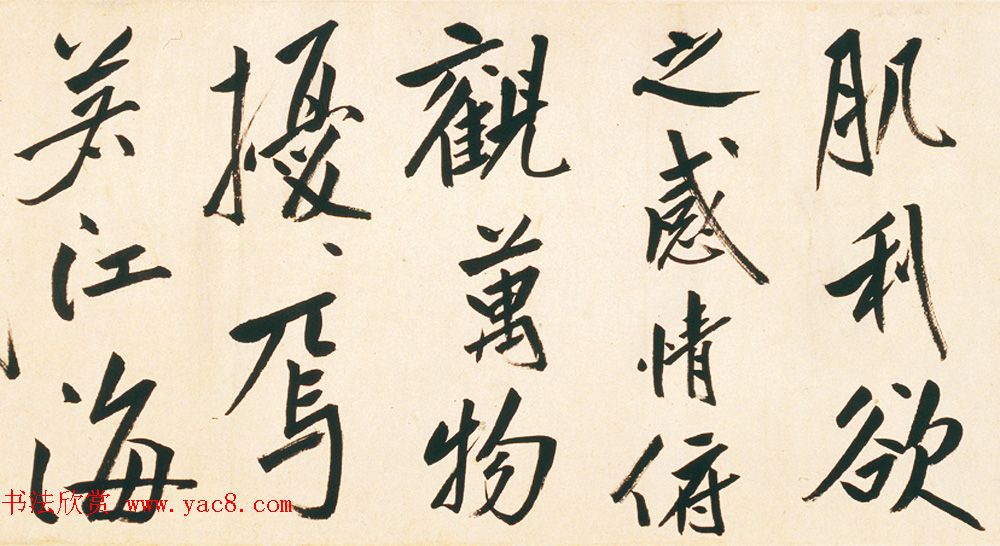 肌利欲
之感情俯
觀萬物
擾〻焉
若江海
书法欣赏 www.yac8.com